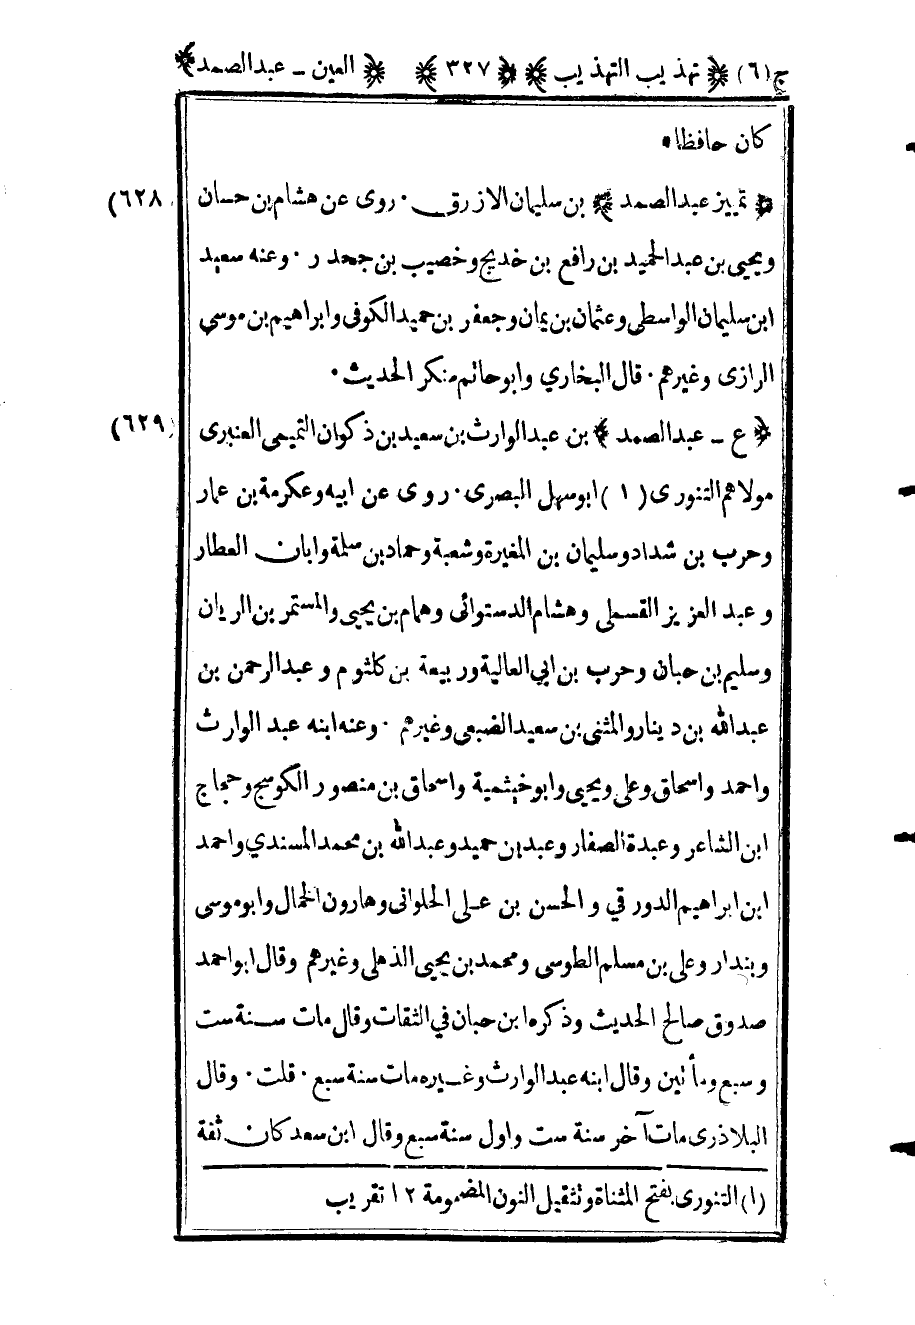 ج(٦) ﴿ تهذيب التهذيب ﴾ ﴿ ٣٢٧ ﴾ ﴿ العين ـ عبدالصمد ﴾
كان حافظا•
(٦٢٨) ﴿ تمييز عبدالصمد ﴾ بن سليمان الازرق . روى عن هشام بن حسان
ويحيى بن عبدالحميد بن رافع بن خديج وخصيب بن جحدر . وعنه سعيد
ابن سليمان الواسطى وعثمان بن يمان وجعفر بن حميد الكوفى وابراهيم بن موسى
الرازى وغيرهم . قال البخاري وابو حاتم منكر الحديث .
(٦٢٩) ﴿ ع ـ عبدالصمد ﴾ بن عبدالوارث بن سعيد بن ذكوان التميمى العنبرى
مولاهم التنورى (١) ابو سهل البصرى . روى عن ابيه وعكرمة بن عمار
وحرب بن شداد وسليمان بن المغيرة وشعبة وحماد بن سلمة وابان العطار
وعبد العزيز القسملى وهشام الدستوائى وهمام بن يحيى والمستمر بن الريان
وسليم بن حبان وحرب بن ابي العالية وربيعة بن كلثوم وعبدالرحمن بن
عبدالله بن دينار والمثنى بن سعيد الضبعى وغيرهم . وعنه ابنه عبد الوارث
واحمد واسحاق وعلى ويحيى وابو خيثمة واسحاق بن منصور الكوسج وحجاج
ابن الشاعر وعبدة الصفار وعبد بن حميد وعبدالله بن محمد المسندي واحمد
ابن ابراهيم الدورقي والحسن بن على الحلوانى وهارون الحمال وابو موسى
وبندار وعلى بن مسلم الطوسى ومحمد بن يحيى الذهلى وغيرهم وقال ابو احمد
صدوق صالح الحديث وذكره ابن حبان في الثقات وقال مات سنة ست
وسبع ومأتين وقال ابنه عبدالوارث وغيره مات سنة سبع . قلت . وقال
البلاذرى مات آخر سنة ست واول سنة سبع وقال ابن سعد كان ثقة
(١) التنورى بفتح المثناة وتثقيل النون المضمومة ١٢ تقريب